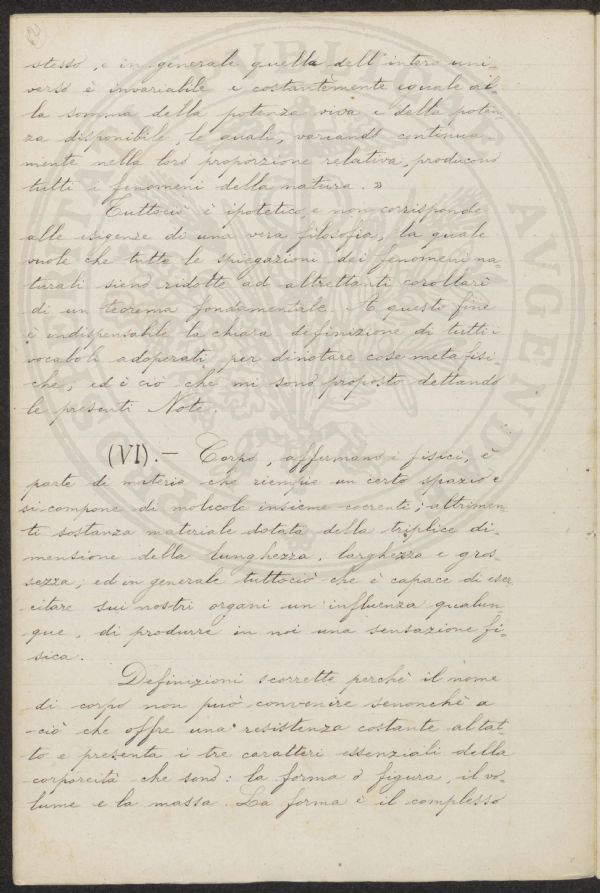 stesso, e in generale quella dell'intero uni-
verso è invariabile e costantemente eguale al-
la somma della potenza viva e della poten-
za disponibile, le quali, variando continua-
mente nella loro proporzione relativa, producono
tutti i fenomeni della natura. »
Tuttociò è ipotetico, e non corrisponde
alle esigenze di una vera filosofia, la quale
vuole che tutte le spiegazioni dei fenomeni na-
turali sieno ridotte ad altrettanti corollarî
di un teorema fondamentale. A questo fine
è indispensabile la chiara definizione di tutti i
vocaboli adoperati per dinotare cose metafisi-
che, ed è ciò che mi sono proposto dettando
le presenti Note.
(VI).— Corpo, affermano i fisici, è
parte di materia che riempie un certo spazio e
si compone di molecole insieme coerenti; altrimen-
ti sostanza materiale dotata della triplice di-
mensione della lunghezza, larghezza e gros-
sezza; ed in generale tuttociò che è capace di eser-
citare sui nostri organi un'influenza qualun-
que, di produrre in noi una sensazione fi-
sica.
Definizioni scorrette perchè il nome
di corpo non può convenire senonchè a
ciò che offre una resistenza costante al tat-
to e presenta i tre caratteri essenziali della
corporeità che sono: la forma o figura, il vo-
lume e la massa. La forma è il complesso